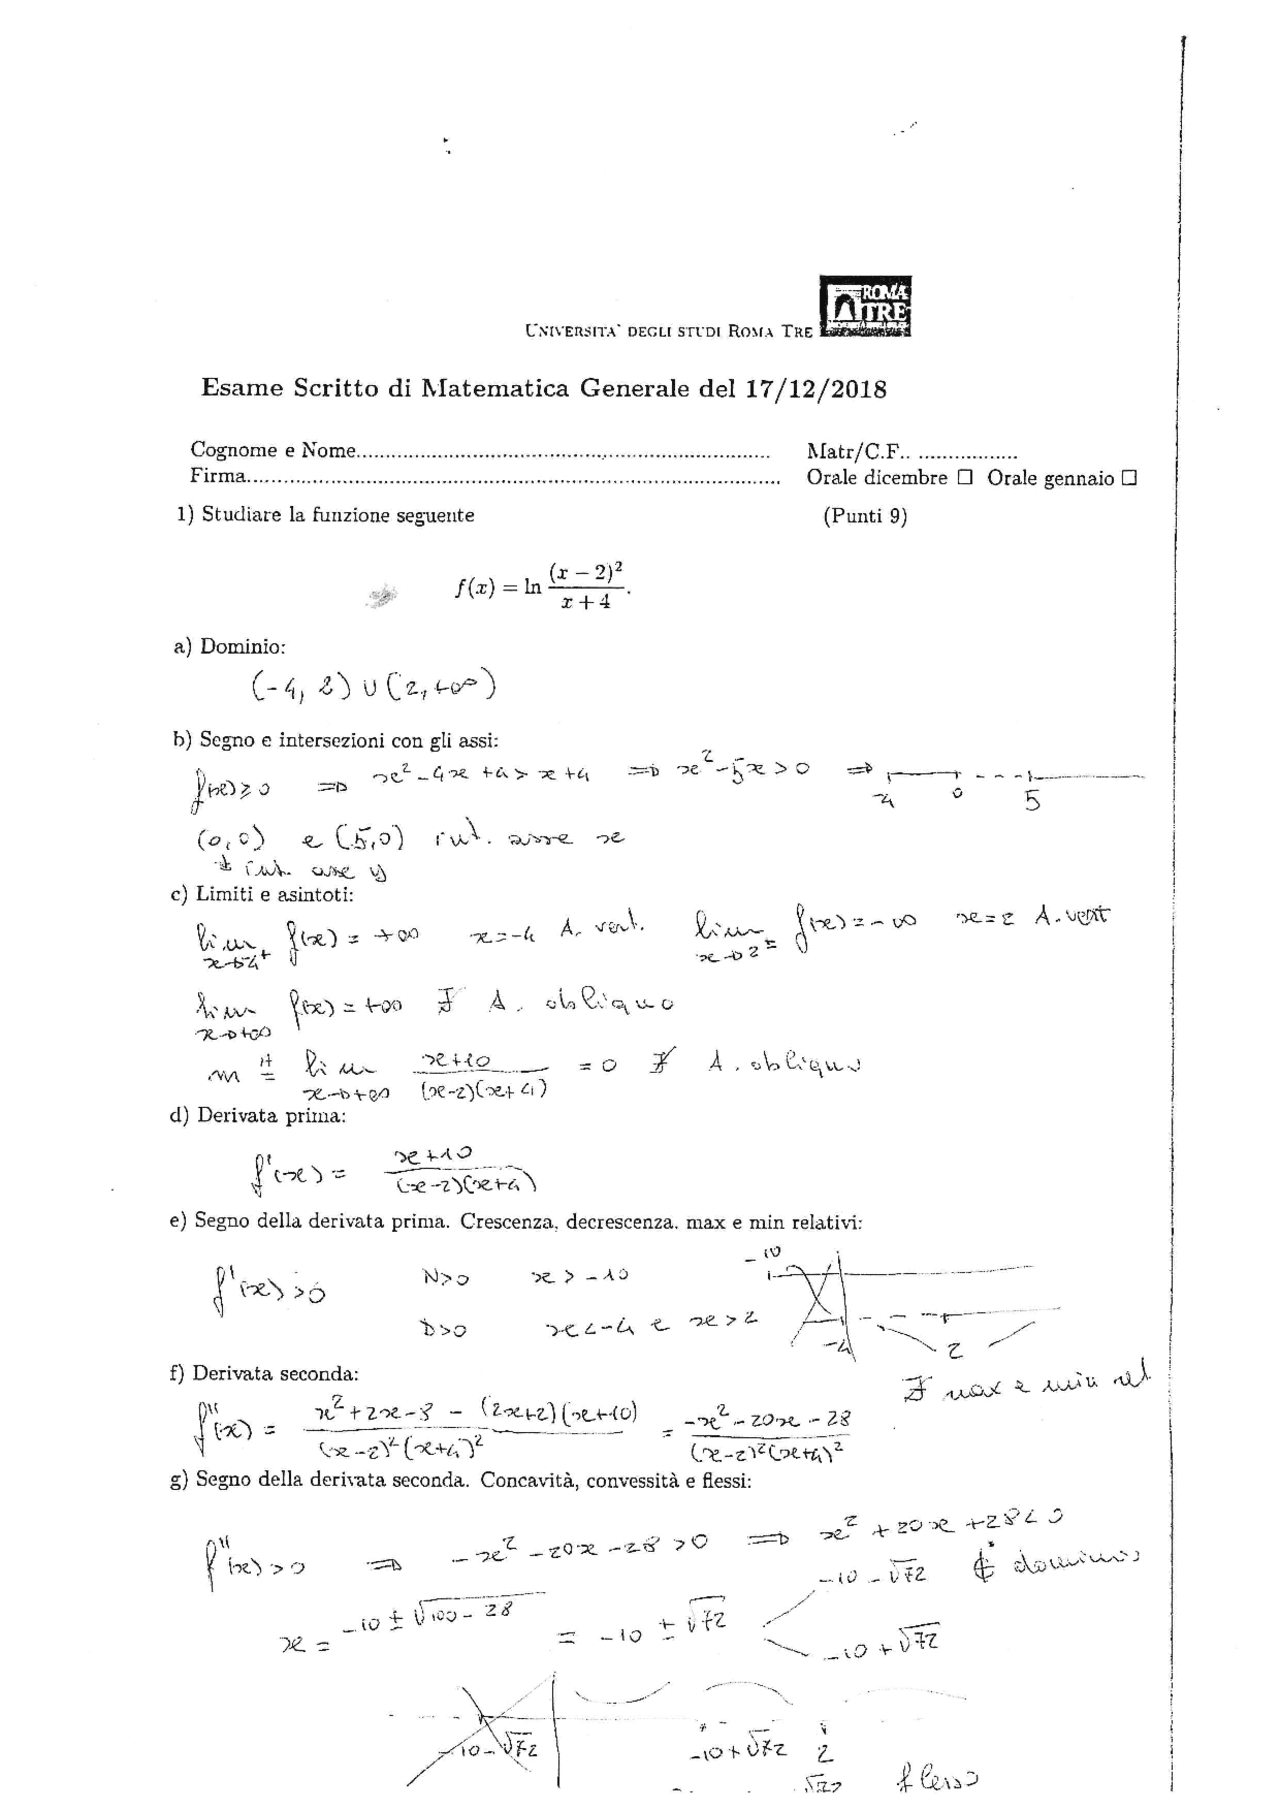 ROMA
TRE
UNIVERSITA` DEGLI STUDI ROMA TRE
Esame Scritto di Matematica Generale del 17/12/2018
Cognome e Nome.................................................................... Matr/C.F.. ................
Firma....................................................................................... Orale dicembre ☐ Orale gennaio ☐
1) Studiare la funzione seguente (Punti 9)
f(x) = ln (x − 2)² / (x + 4).
a) Dominio:
(-4, 2) ∪ (2, +∞)
b) Segno e intersezioni con gli assi:
f(x) ≥ 0 ⇒ x² - 4x + 4 > x + 4 ⇒ x² - 5x > 0 ⇒ -4 0 5
(0,0) e (5,0) int. asse x
int. asse y
c) Limiti e asintoti:
lim x→-4⁺ f(x) = +∞ x = -4 A. vert. lim x→2± f(x) = -∞ x = 2 A. vert
lim x→+∞ f(x) = +∞ ∄ A. obliquo
m =ᴴ lim x→+∞ (x+10) / ((x-2)(x+4)) = 0 ∄ A. obliquo
d) Derivata prima:
f'(x) = (x+10) / ((x-2)(x+4))
e) Segno della derivata prima. Crescenza, decrescenza. max e min relativi:
f'(x) > 0 N>0 x > -10 -10
D>0 x < -4 e x > 2 -4 2
∄ max e min rel
f) Derivata seconda:
f''(x) = (x² + 2x - 8 - (2x+2)(x+10)) / ((x-2)²(x+4)²) = (-x² - 20x - 28) / ((x-2)²(x+4)²)
g) Segno della derivata seconda. Concavità, convessità e flessi:
f''(x) > 0 ⇒ -x² - 20x - 28 > 0 ⇒ x² + 20x + 28 < 0
x = -10 ± √(100 - 28) = -10 ± √72 -10 - √72 ∉ dominio
-10 + √72
-10 - √72 -10 + √72 2
flesso